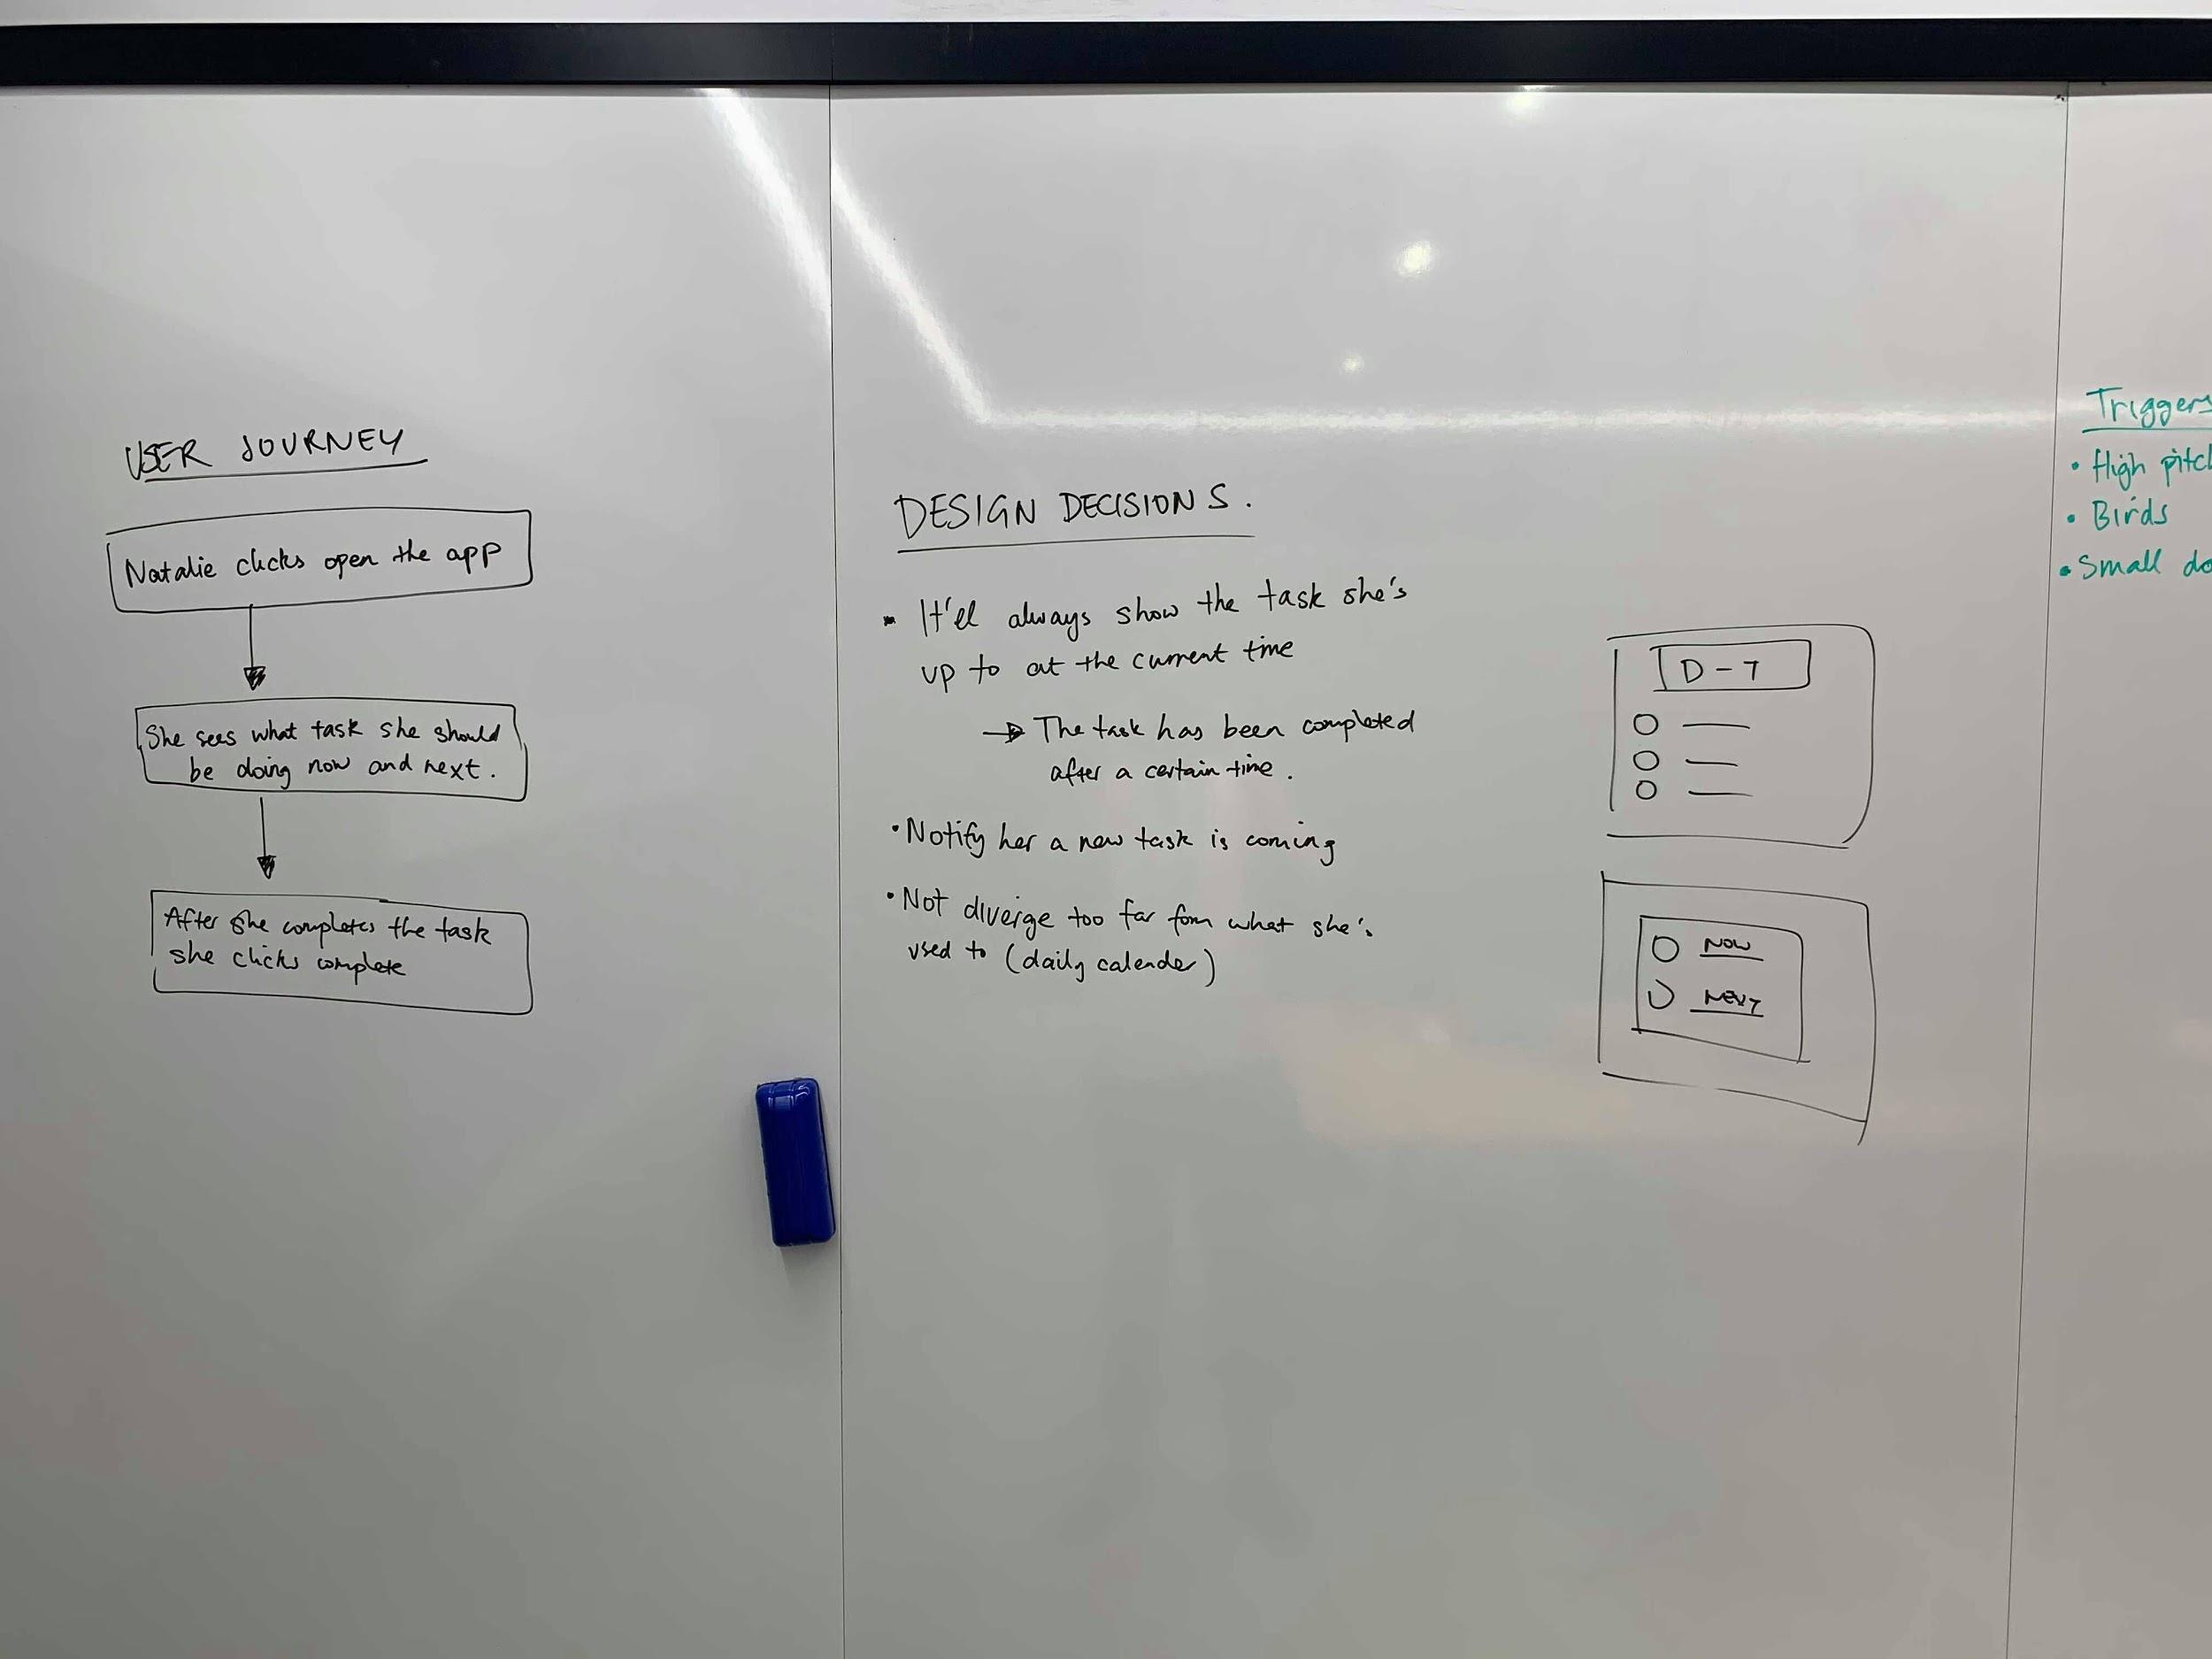 USER JOURNEY
Natalie clicks open the app
She sees what task she should
be doing now and next.
After she completes the task
she clicks complete
DESIGN DECISIONS.
• It'll always show the task she's
up to at the current time
→ The task has been completed
after a certain time.
• Notify her a new task is coming
• Not diverge too far fom what she's
used to (daily calender)
D - T
NOW
NEXT
Triggers
• High pitch
• Birds
• Small do